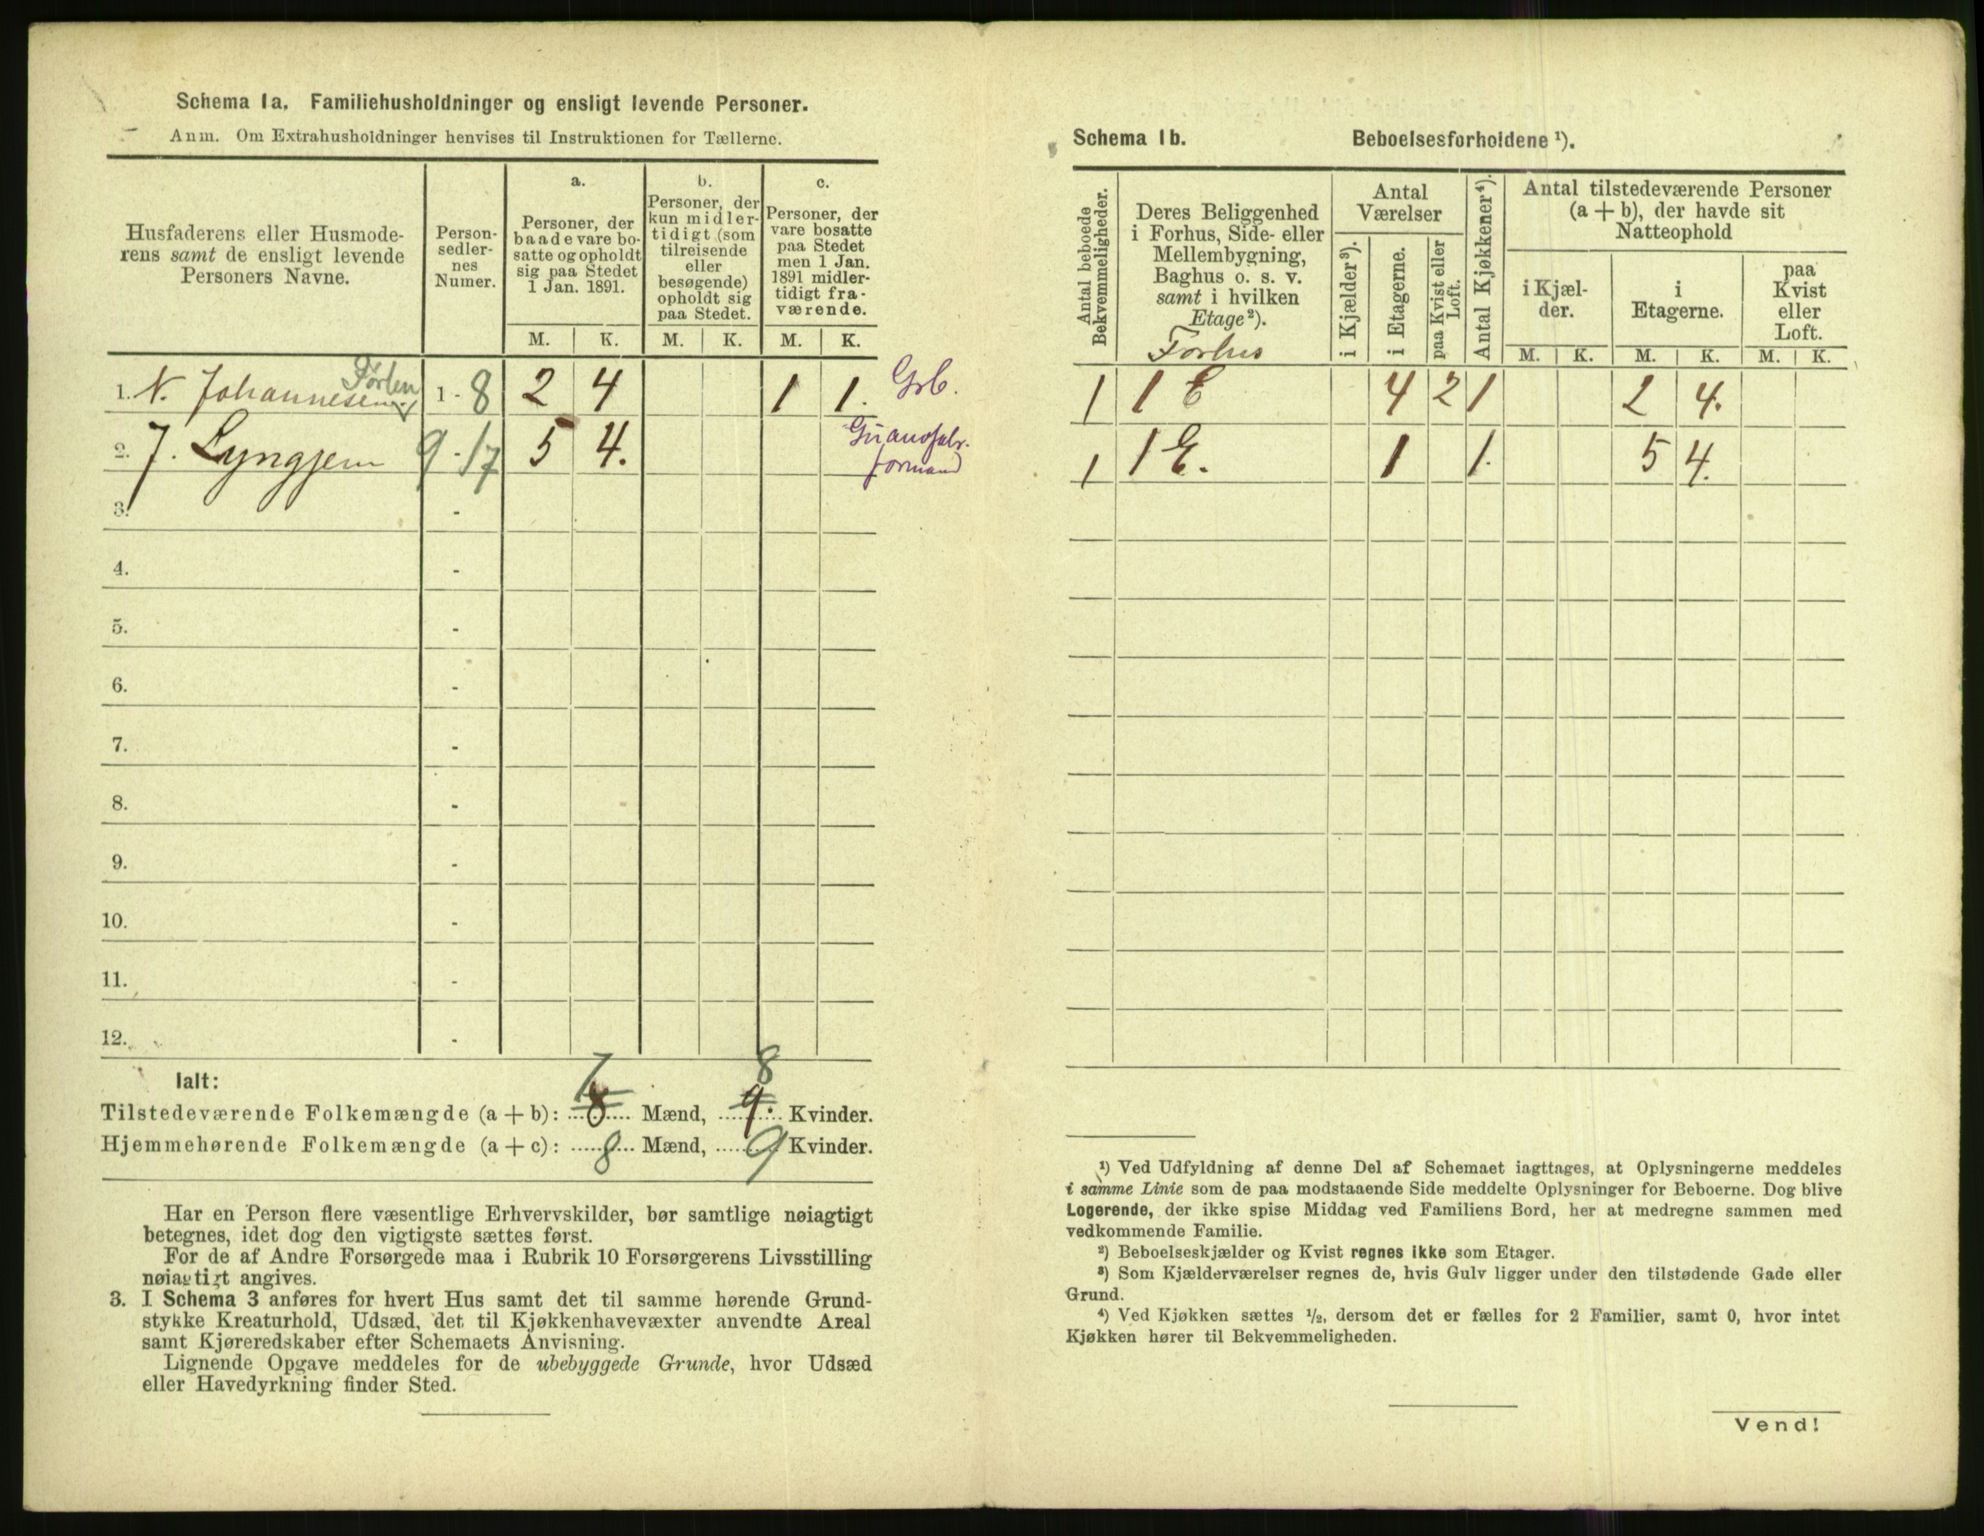 Schema 1a. Familiehusholdninger og ensligt levende Personer.
Anm. Om Extrahusholdninger henvises til Instruktionen for Tællerne.
Husfaderens eller Husmode-
rens samt de ensligt levende
Personers Navne.
Person-
sedler-
nes
Numer.
a.
Personer, der
baade vare bo-
satte og opholdt
sig paa Stedet
1 Jan. 1891.
b.
Personer, der
kun midler-
tidigt (som
tilreisende
eller
besøgende)
opholdt sig
paa Stedet.
c.
Personer, der
vare bosatte
paa Stedet
men 1 Jan.
1891 midler-
tidigt fra-
værende.
M. K. M. K. M. K.
1. N. Johannesen 1 - 8 2 4 1 1. Grb.
2. J. Lyngjem 9 - 17 5 4. Guanofabr.
formand
3. -
4. -
5. -
6. -
7. -
8. -
9. -
10. -
11. -
12. -
Ialt:
7 8
Tilstedeværende Folkemængde (a + b): 8 Mænd, 9. Kvinder.
Hjemmehørende Folkemængde (a + c): 8 Mænd, 9 Kvinder.
Har en Person flere væsentlige Erhvervskilder, bør samtlige nøiagtigt
betegnes, idet dog den vigtigste sættes først.
For de af Andre Forsørgede maa i Rubrik 10 Forsørgerens Livsstilling
nøiagtigt angives.
3. I Schema 3 anføres for hvert Hus samt det til samme hørende Grund-
stykke Kreaturhold, Udsæd, det til Kjøkkenhavevæxter anvendte Areal
samt Kjøreredskaber efter Schemaets Anvisning.
Lignende Opgave meddeles for de ubebyggede Grunde, hvor Udsæd
eller Havedyrkning finder Sted.
Schema 1b. Beboelsesforholdene ¹).
Antal beboede
Bekvemmeligheder.
Deres Beliggenhed
i Forhus, Side- eller
Mellembygning,
Baghus o. s. v.
samt i hvilken
Etage²).
Forhus
Antal
Værelser
i Kjælder³).
i Etagerne.
paa Kvist eller
Loft.
Antal Kjøkkener⁴).
Antal tilstedeværende Personer
(a + b), der havde sit
Natteophold
i Kjæl-
der.
i
Etagerne.
paa
Kvist
eller
Loft.
M. K. M. K. M. K.
1 1 E 4 2 1 2 4.
1 1 E. 1 1. 5 4.
¹) Ved Udfyldning af denne Del af Schemaet iagttages, at Oplysningerne meddeles
i samme Linie som de paa modstaaende Side meddelte Oplysninger for Beboerne. Dog blive
Logerende, der ikke spise Middag ved Familiens Bord, her at medregne sammen med
vedkommende Familie.
²) Beboelseskjælder og Kvist regnes ikke som Etager.
³) Som Kjælderværelser regnes de, hvis Gulv ligger under den tilstødende Gade eller
Grund.
⁴) Ved Kjøkken sættes ½, dersom det er fælles for 2 Familier, samt 0, hvor intet
Kjøkken hører til Bekvemmeligheden.
Vend!